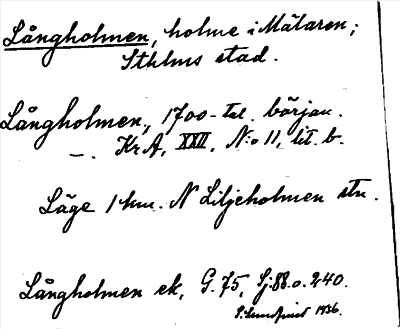 Långholmen, holme i Mälaren;
Sthlms stad.
Långholmen, 1700-tal. början.
—. Kr A, XXII, N:o 11, lit. b.
Läge 1 km. N Liljeholmen stn.
Långholmen ek, G. 75, Sj. 88. o. 240.
S. Lundqvist 1936.